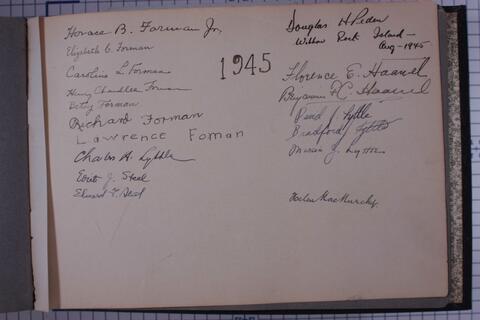 Horace B. Forman Jr,
Elizabeth C. Forman
Caroline L. Forman
Henry Chandlee Forman
Betty Forman
Richard Forman
Lawrence Foman
Charles A. Lyttle
J. Steel
Edward T. Steel
1945
Douglas H Peden
Willow Rock Island -
Aug - 1945
Florence E. Haawel
Benjamin F.C. Haawel
J Lyttle
Bradford Lyttle
Marian J. Lyttle
Helen MacMurchy